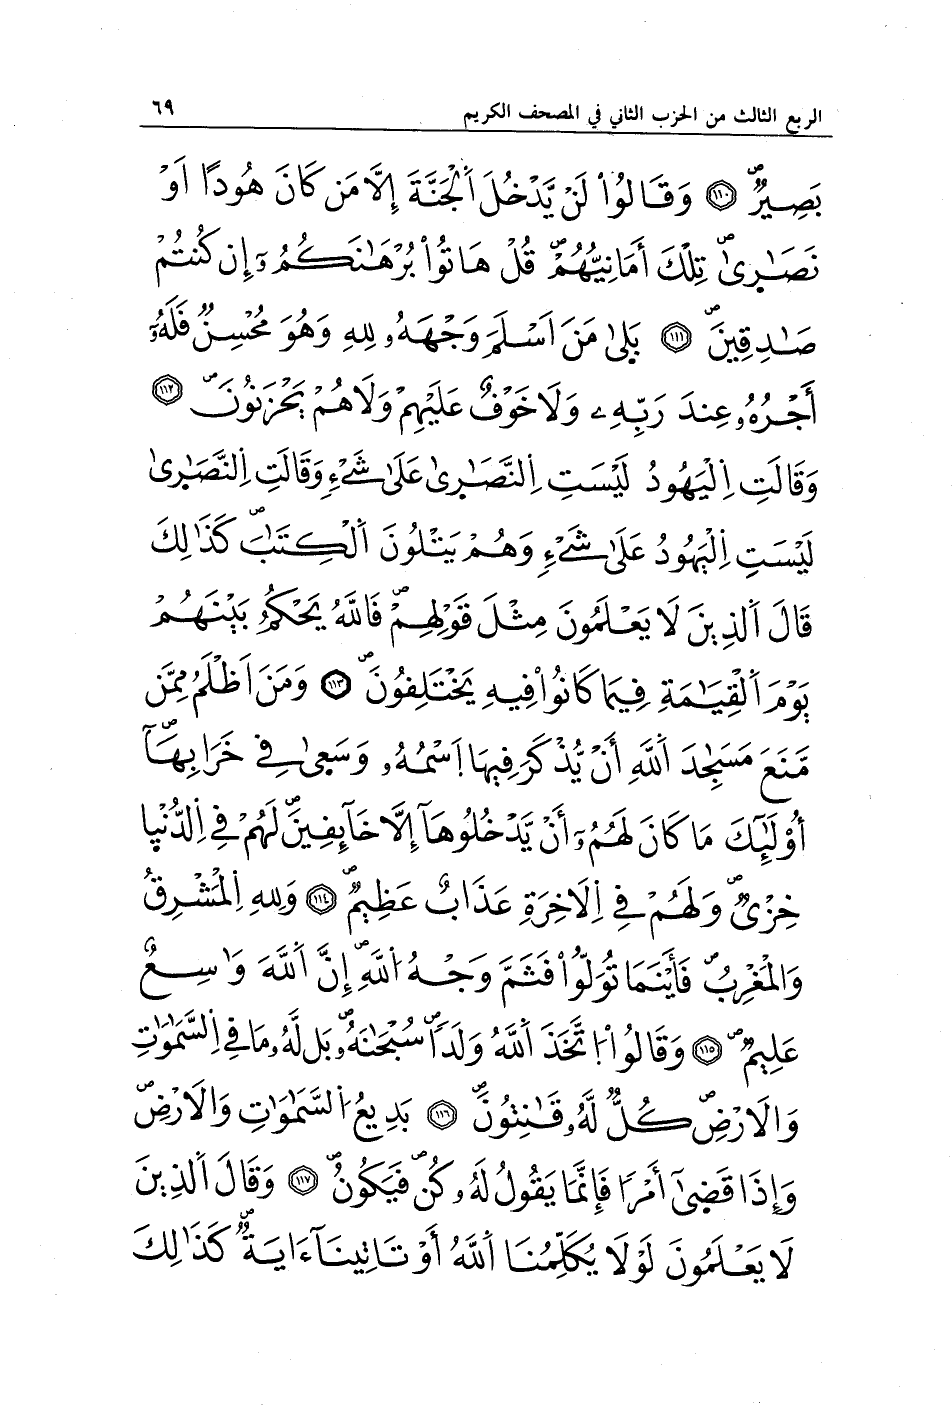 الربع الثالث من الحزب الثاني في المصحف الكريم ٦٩
بَصِيرٌ ۝١١٠ وَقَالُواْ لَنْ يَّدْخُلَ اَ۬لْجَنَّةَ إِلَّا مَن كَانَ هُودًا اَوْ
نَصَـٰرىٰ تِلْكَ أَمَانِيُّهُمْ قُلْ هَاتُواْ بُرْهَـٰنَكُمُۥٓ إِن كُنتُمْ
صَـٰدِقِينَ ۝١١١ بَلىٰ مَنَ اَسْلَمَ وَجْهَهُۥ لِلهِ وَهُوَ مُحْسِنٌ فَلَهُۥٓ
أَجْرُهُۥ عِندَ رَبِّهِۦ وَلَا خَوْفٌ عَلَيْهِمْ وَلَا هُمْ يَحْزَنُونَ ۝١١٢
وَقَالَتِ اِ۬لْيَهُودُ لَيْسَتِ اِ۬لنَّصَـٰرىٰ عَلَىٰ شَےْءٍ وَقَالَتِ اِ۬لنَّصَـٰرىٰ
لَيْسَتِ اِ۬لْيَهُودُ عَلَىٰ شَےْءٍ وَهُمْ يَتْلُونَ اَ۬لْكِتَـٰبَ كَذَٰلِكَ
قَالَ اَ۬لذِينَ لَا يَعْلَمُونَ مِثْلَ قَوْلِهِمْ فَاللَّهُ يَحْكُمُ بَيْنَهُمْ
يَوْمَ اَ۬لْقِيَـٰمَةِ فِيمَا كَانُواْ فِيهِ يَخْتَلِفُونَ ۝١١٣ وَمَنَ اَظْلَمُ مِمَّن
مَّنَعَ مَسَـٰجِدَ اَ۬للَّهِ أَنْ يُّذْكَرَ فِيهَا اَ۪سْمُهُۥ وَسَعىٰ فِے خَرَابِهَآ
أُوْلَـٰٓئِكَ مَا كَانَ لَهُمُۥٓ أَنْ يَّدْخُلُوهَآ إِلَّا خَآئِفِينَ لَهُمْ فِے اِ۬لدُّنْيا
خِزْىٌ وَلَهُمْ فِے اِ۬لَاخِرَةِ عَذَابٌ عَظِيمٌ ۝١١٤ وَلِلهِ اِ۬لْمَشْرِقُ
وَالْمَغْرِبُ فَأَيْنَمَا تُوَلُّواْ فَثَمَّ وَجْهُ اُ۬للَّهِ إِنَّ اَ۬للَّهَ وَٰسِعٌ
عَلِيمٌ ۝١١٥ وَقَالُواْ اُ۪تَّخَذَ اَ۬للَّهُ وَلَدًا سُبْحَـٰنَهُۥ بَل لَّهُۥ مَا فِے اِ۬لسَّمَـٰوَٰتِ
وَالَارْضِ كُلٌّ لَّهُۥ قَـٰنِتُونَ ۝١١٦ بَدِيعُ اُ۬لسَّمَـٰوَٰتِ وَالَارْضِ
وَإِذَا قَضىٰٓ أَمْرًا فَإِنَّمَا يَقُولُ لَهُۥ كُن فَيَكُونُ ۝١١٧ وَقَالَ اَ۬لذِينَ
لَا يَعْلَمُونَ لَوْلَا يُكَلِّمُنَا اَ۬للَّهُ أَوْ تَاتِينَآ ءَايَةٌ كَذَٰلِكَ